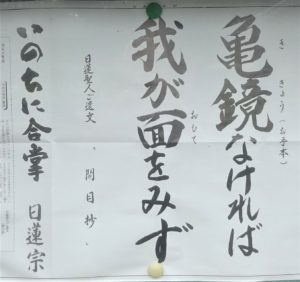 亀鏡なければ
き きょう(お手本)
我が面をみず
おもて
日蓮聖人ご遺文 、開目抄、
いのちに合掌 日蓮宗